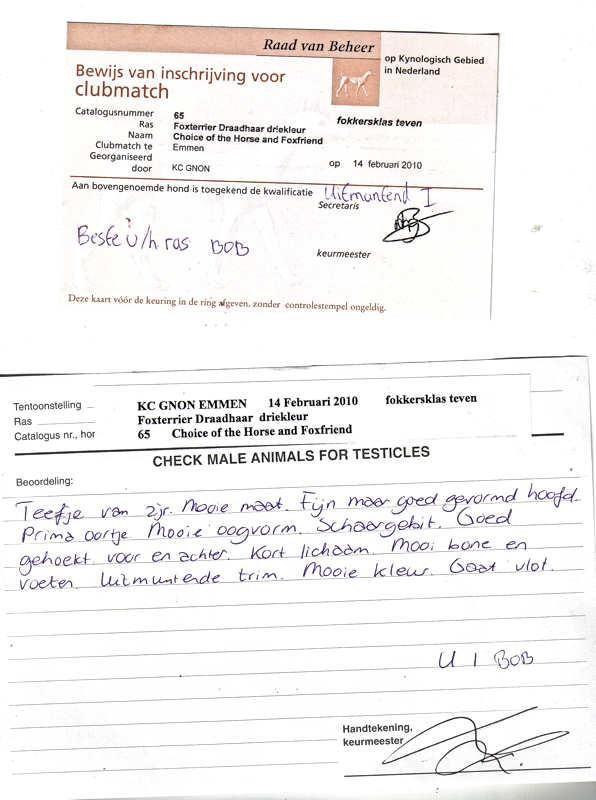 Raad van Beheer
op Kynologisch Gebied
in Nederland
Bewijs van inschrijving voor
clubmatch
Catalogusnummer 65
Ras Foxterrier Draadhaar driekleur fokkersklas teven
Naam Choice of the Horse and Foxfriend
Clubmatch te Emmen
Georganiseerd
door KC GNON op 14 februari 2010
Aan bovengenoemde hond is toegekend de kwalificatie Uitmuntend I
Secretaris
Beste v/h ras BOB
keurmeester
Deze kaart vóór de keuring in de ring afgeven. zonder controlestempel ongeldig.
Tentoonstelling KC GNON EMMEN 14 Februari 2010 fokkersklas teven
Ras Foxterrier Draadhaar driekleur
Catalogus nr., hor 65 Choice of the Horse and Foxfriend
CHECK MALE ANIMALS FOR TESTICLES
Beoordeling:
Teefje van 2jr. Mooie maat. Fijn maar goed gevormd hoofd.
Prima oortje Mooie oogvorm. Schaargebit. Goed
gehoekt voor en achter. Kort lichaam. Mooi bone en
voeten. Uitmuntende trim. Mooie kleur. Gaat vlot.
U 1 BOB
Handtekening,
keurmeester